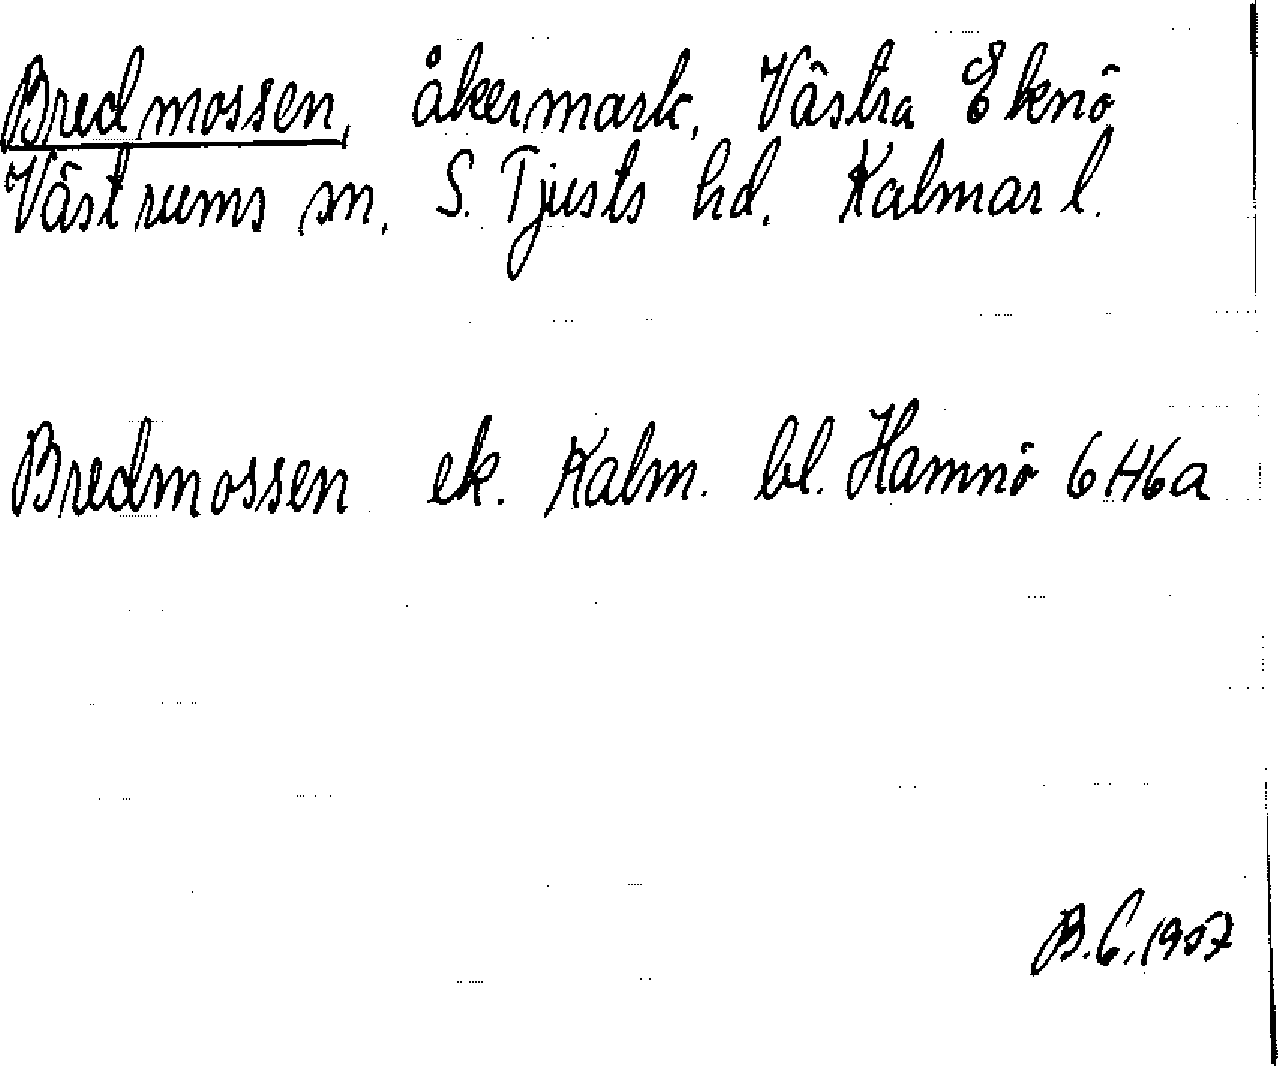 Bredmossen, åkermark, Västra Eknö
Västrums sn. S. Tjusts hd. Kalmar l.
Bredmossen ek. Kalm. bl. Hamnö 6H6a
B.C. 1957